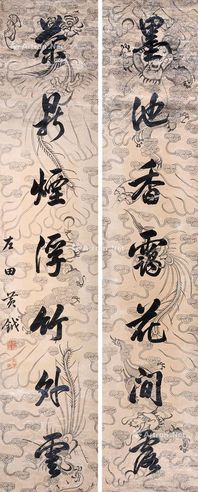 墨池香靄花間露
茶鼎煙浮竹外雲
左田黃鉞